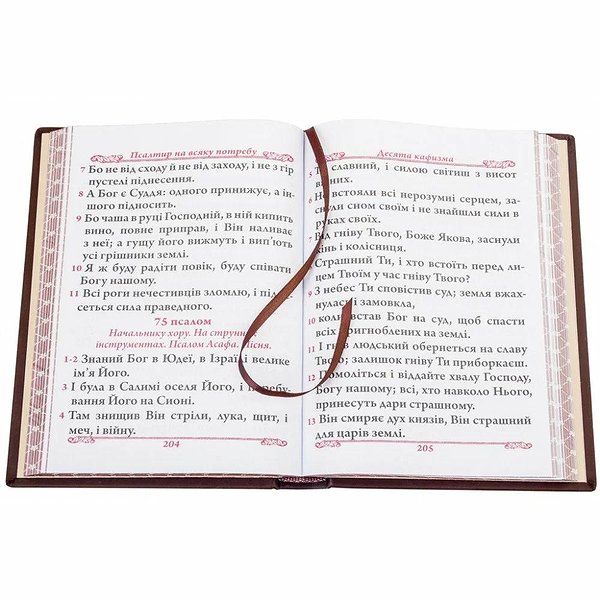 Псалтир на всяку потребу
7 Бо не від сходу й не від заходу, і не з гір
пустелі піднесення.
8 А Бог є Суддя: одного принижує, а ін-
шого підносить.
9 Бо чаша в руці Господній, в ній кипить
вино, повне приправ, і Він наливає
з неї; а гущу його вижмуть і вип’ють
усі грішники землі.
10 Я ж буду радіти повік, буду співати
Богу нашому.
11 Всі роги нечестивців зломлю, і підне-
сеться сила праведного.
75 псалом
Начальнику хору. На струнних
інструментах. Псалом Асафа. Пісня.
1-2 Знаний Бог в Юдеї, в Ізраїлі велике
ім’я Його.
3 І була в Салимі оселя Його, і перебу-
вання Його на Сионі.
4 Там знищив Він стріли, лука, щит, і
меч, і війну.
204
Десята кафизма
5 Ти славний, і силою світиш з висот
вічних.
6 Не встояли всі нерозумні серцем, за-
снули сном своїм і не знайшли сили в
руках своїх.
7 Від гніву Твого, Боже Якова, заснули
кінь і колісниця.
8 Страшний Ти, і хто встоїть перед ли-
цем Твоїм у час гніву Твого?
9 З небес Ти сповістив суд; земля вжах-
нулась і замовкла,
10 коли встав Бог на суд, щоб спасти
всіх пригноблених на землі.
11 І гнів людський обернеться на славу
Твою; залишок гніву Ти приборкаєш.
12 Помоліться і віддайте хвалу Господу,
Богу нашому; всі, хто навколо Нього,
принесуть дари страшному.
13 Він смиряє дух князів, Він страшний
для царів землі.
205